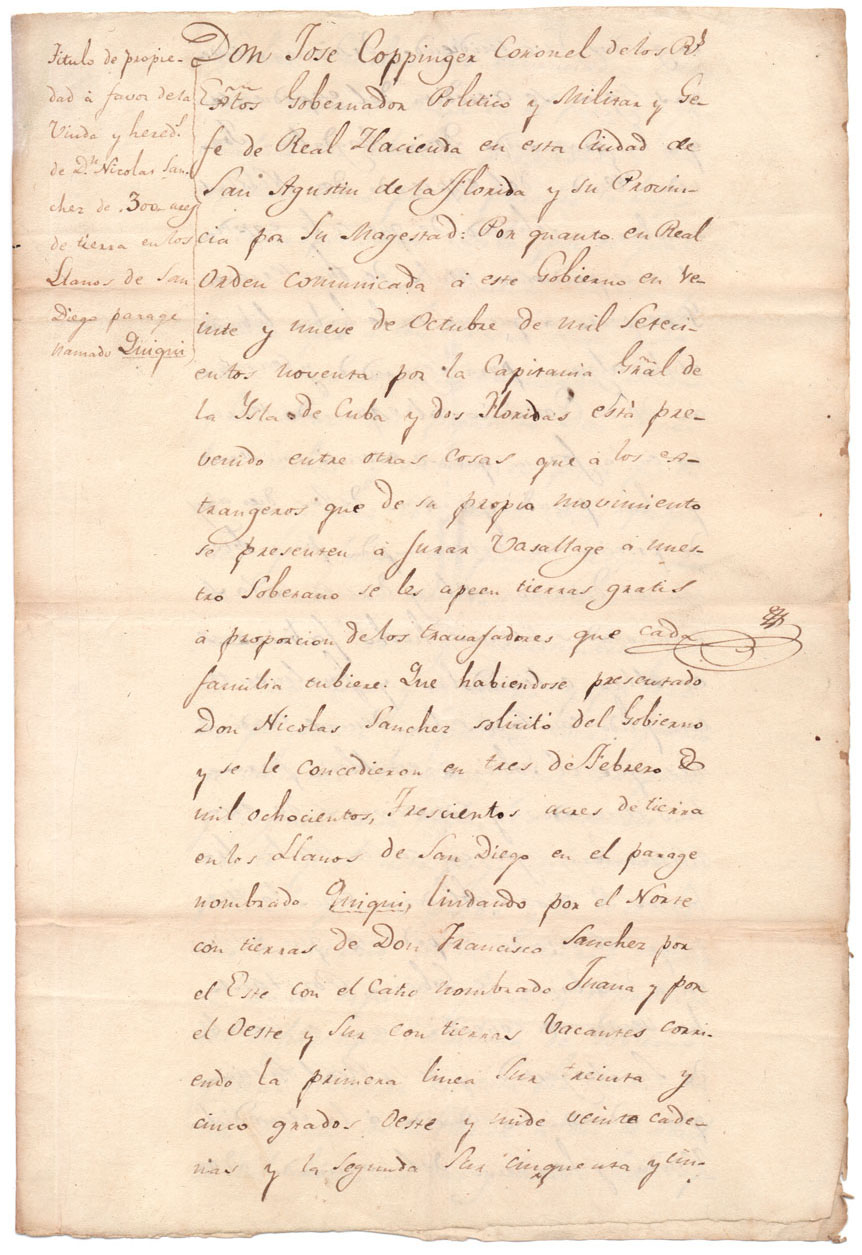 Titulo de propie-
dad á favor de la
Viuda y hered.s
de D.n Nicolas San-
chez de 300 acres
de tierra en los
Llanos de San
Diego parage
llamado Quiqui
Don Jose Coppinger Coronel de los R.s
Extos Gobernador Politico y Militar y Ge-
fe de Real Hacienda en esta Ciudad de
San Agustin de la Florida y su Provin-
cia por Su Magestad: Por quanto en Real
Orden comunicada á este Gobierno en ve-
inte y nueve de Octubre de mil Seteci-
entos noventa por la Capitania Gñal de
la Ysla de Cuba y dos Floridas está pre-
venido entre otras cosas que á los es-
trangeros que de su propio movimiento
se presenten á Jurar Vasallage á nues-
tro Soberano se les apeen tierras gratis
á proporcion de los travajadores que cada
familia tubiere. Que habiendose presentado
Don Nicolas Sanchez solicitó del Gobierno
y se le concedieron en tres de Febrero de
mil ochocientos, Trescientos acres de tierra
en los Llanos de San Diego en el parage
nombrado Quiqui, lindando por el Norte
con tierras de Don Francisco Sanchez por
el Este con el Caño nombrado Juana y por
el Oeste y Sur con tierras Vacantes corri-
endo la primera linea Sur treinta y
cinco grados Oeste y mide veinte cade-
nas y la segunda Sur cinquenta y cin-